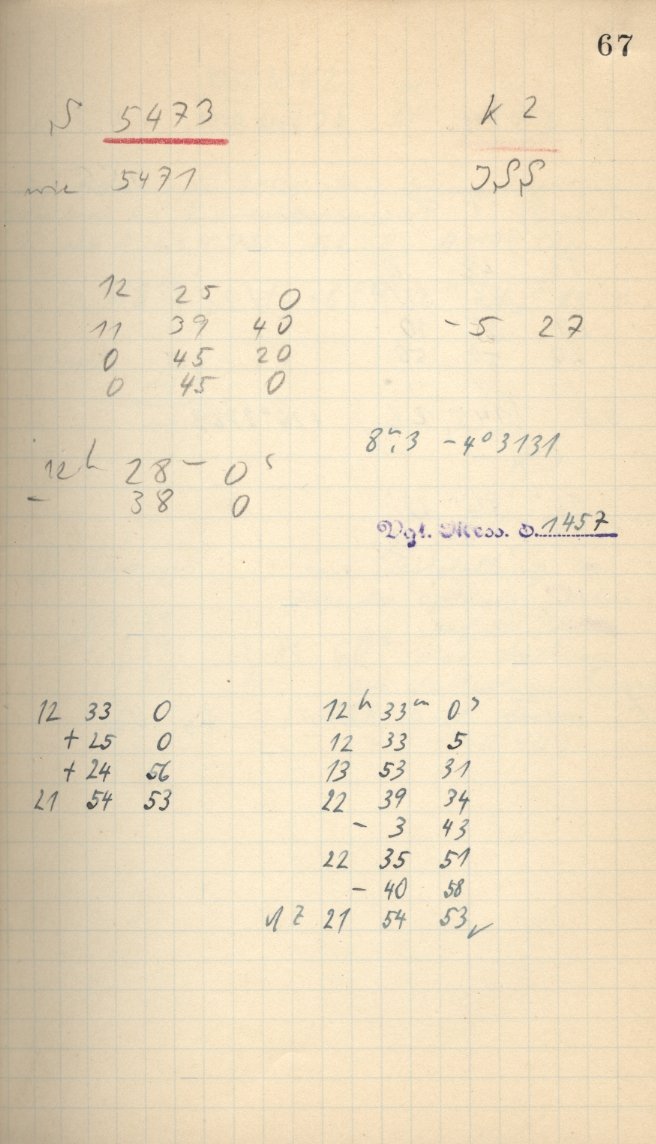 67
S 5473 K 2
wie 5471 JSS
12 25 0
11 39 40 - 5 27
0 45 20
0 45 0
8ᵐ,3 -4⁰3131
12ʰ 28ᵐ 0ˢ
- 38 0
Vgl. Mess. S. 1457
12 33 0 12ʰ 33ᵐ 0ˢ
+ 25 0 12 33 5
+ 24 56 13 53 31
21 54 53 22 39 34
- 3 43
22 35 51
- 40 58
21 54 53 ✓